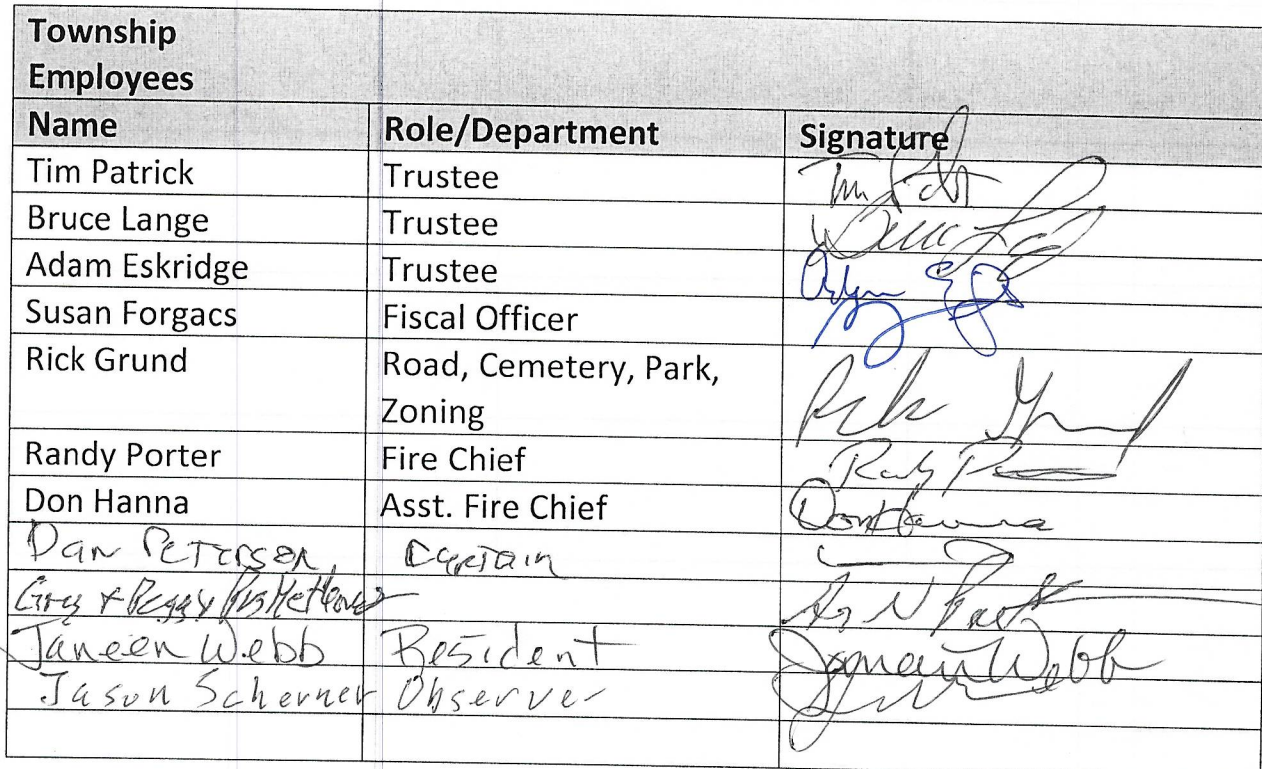 Township
Employees
Name Role/Department Signature
Tim Patrick Trustee Tim Pat
Bruce Lange Trustee
Adam Eskridge Trustee
Susan Forgacs Fiscal Officer
Rick Grund Road, Cemetery, Park,
Zoning
Randy Porter Fire Chief
Don Hanna Asst. Fire Chief Don Hanna
Dan Peterson Captain
Greg & Peggy
Janeen Webb Resident Janeen Webb
Jason Scherner Observer